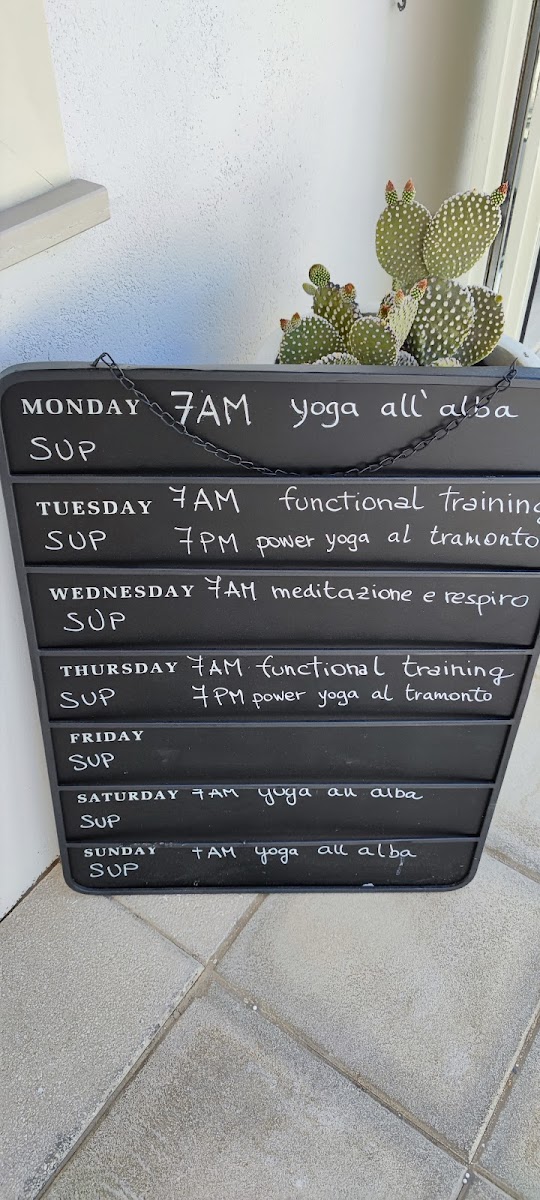 MONDAY 7AM yoga all'alba
SUP
TUESDAY 7AM functional training
SUP 7PM power yoga al tramonto
WEDNESDAY 7AM meditazione e respiro
SUP
THURSDAY 7AM functional training
SUP 7PM power yoga al tramonto
FRIDAY
SUP
SATURDAY 7AM yoga all alba
SUP
SUNDAY 7AM yoga all alba
SUP